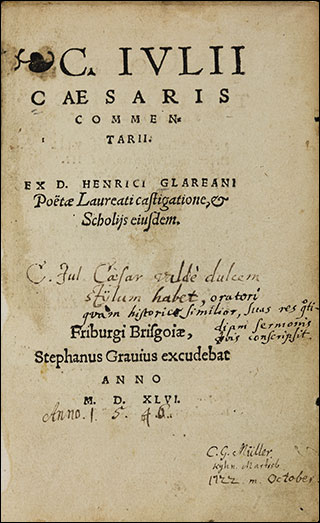 C. IVLII
CAESARIS
COMMEN-
TARII.
EX D. HENRICI GLAREANI
Poëtæ Laureati castigatione, &
Scholijs eiusdem.
C. Jul. Cæsar valdè dulcem
stÿlum habet, oratori
quàm historico similior, suas res
diani sermonis
conscripsit.
Friburgi Brisgoiæ,
Stephanus Grauius excudebat
ANNO
M. D. XLVI.
Anno. 1 5 4 6.
C. G. Müller.
1722. m. October.